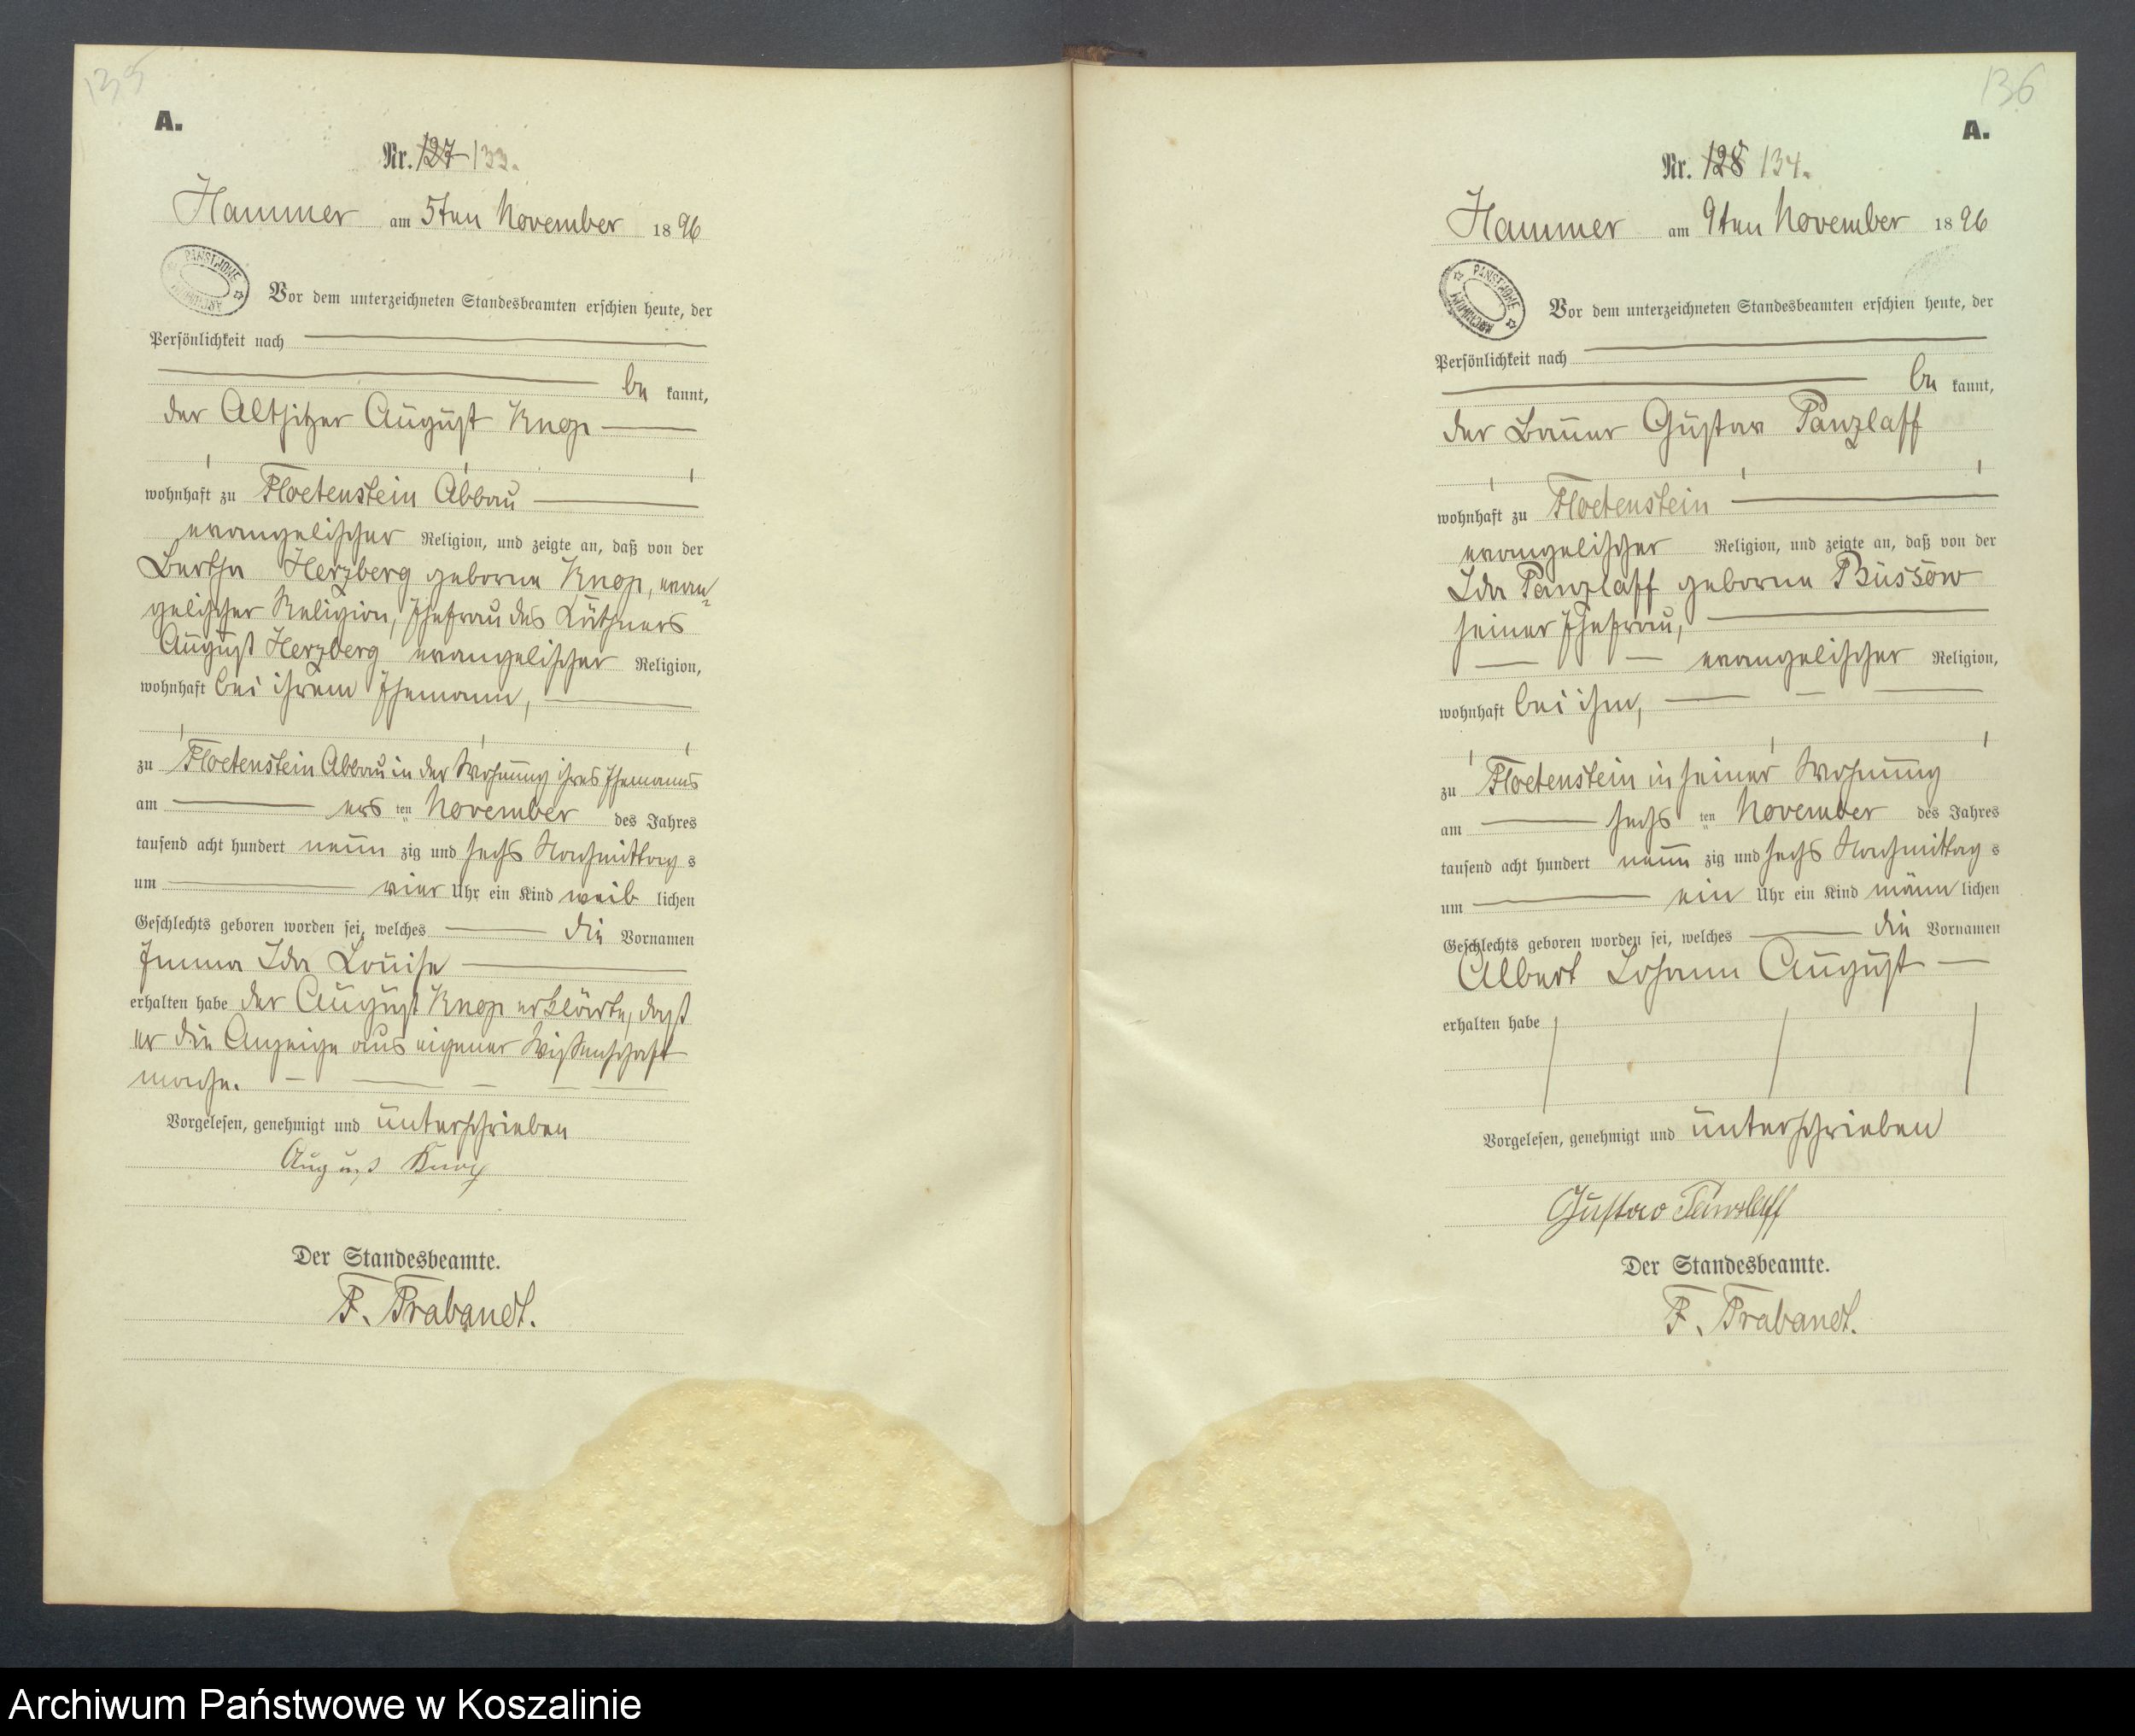 135
A.
Nr. 127 133.
Hammer am 5ten November 1896
PAŃSTWOWE ARCHIWUM
Vor dem unterzeichneten Standesbeamten erschien heute, der
Persönlichkeit nach
be kannt,
der Altsitzer August Knop
wohnhaft zu Floetenstein Abbau
evangelischer Religion, und zeigte an, daß von der
Bertha Herzberg geborne Knop, evan-
gelischer Religion, Ehefrau des Käthners
August Herzberg evangelischer Religion,
wohnhaft bei ihrem Ehemann,
zu Floetenstein Abbau in der Wohnung ihres Ehemanns
am ers ten November des Jahres
tausend acht hundert neun zig und sechs Nachmittag s
um vier Uhr ein Kind weib lichen
Geschlechts geboren worden sei, welches die Vornamen
Emma Ida Louise
erhalten habe der August Knop erklärte, daß
er die Anzeige aus eigener Wissenschaft
mache.
Vorgelesen, genehmigt und unterschrieben
August Knop
Der Standesbeamte.
F. Trabandt.
136
A.
Nr. 128 134.
Hammer am 9ten November 1896
PAŃSTWOWE ARCHIWUM
Vor dem unterzeichneten Standesbeamten erschien heute, der
Persönlichkeit nach
be kannt,
der Bauer Gustav Panzlaff
wohnhaft zu Floetenstein
evangelischer Religion, und zeigte an, daß von der
Ida Panzlaff geborne Büssow
seiner Ehefrau,
evangelischer Religion,
wohnhaft bei ihm,
zu Floetenstein in seiner Wohnung
am sechs ten November des Jahres
tausend acht hundert neun zig und sechs Nachmittag s
um ein Uhr ein Kind männ lichen
Geschlechts geboren worden sei, welches die Vornamen
Albert Johann August
erhalten habe
Vorgelesen, genehmigt und unterschrieben
Gustav Panzlaff
Der Standesbeamte.
F. Trabandt.
Archiwum Państwowe w Koszalinie